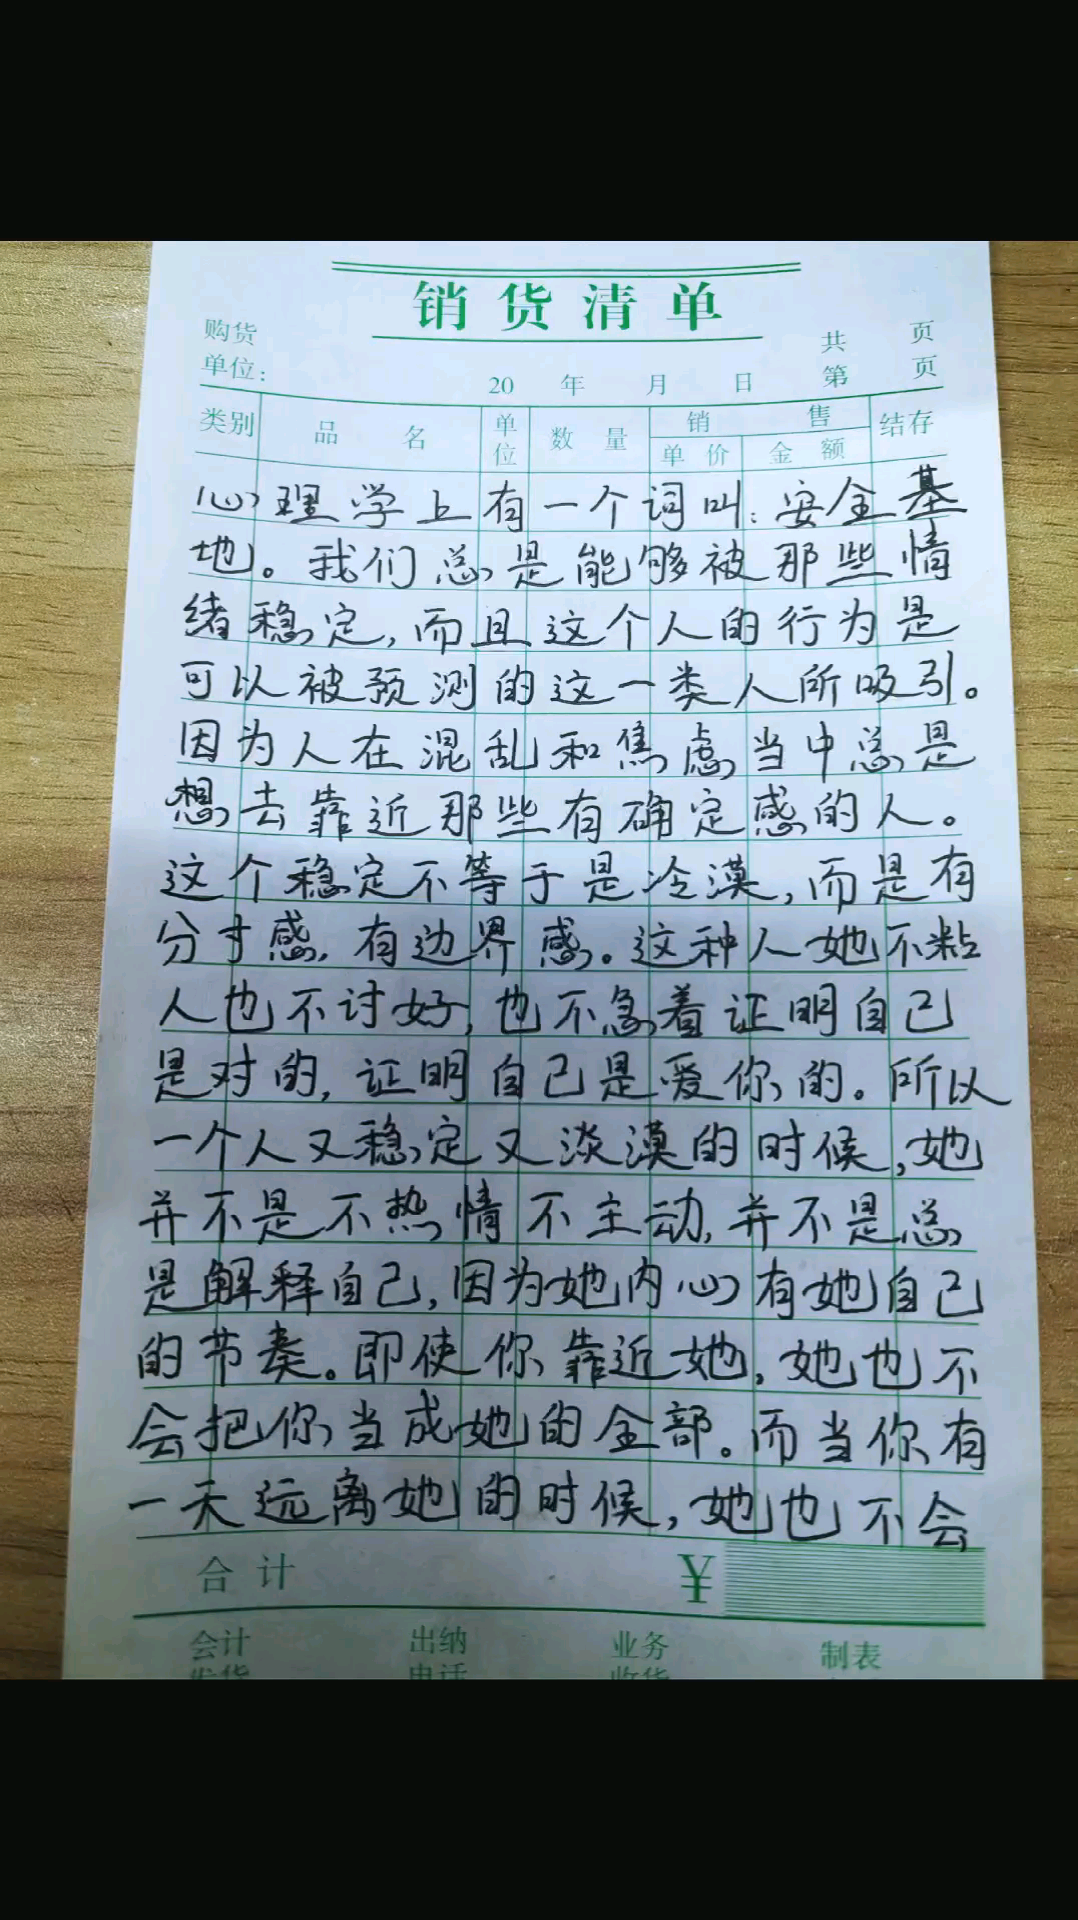 销货清单
购货
单位：
20 年 月 日
共 页
第 页
类别 品名 单位 数量 销售 单价 金额 结存
心理学上有一个词叫：安全基
地。我们总是能够被那些情
绪稳定，而且这个人的行为是
可以被预测的这一类人所吸引。
因为人在混乱和焦虑当中总是
想去靠近那些有确定感的人。
这个稳定不等于是冷漠，而是有
分寸感，有边界感。这种人她不粘
人也不讨好，也不急着证明自己
是对的，证明自己是爱你的。所以
一个人又稳定又淡漠的时候，她
并不是不热情不主动，并不是总
是解释自己，因为她内心有她自己
的节奏。即使你靠近她，她也不
会把你当成她的全部。而当你有
一天远离她的时候，她也不会
合计 ¥
会计 出纳 业务 制表
发货 电话 收货